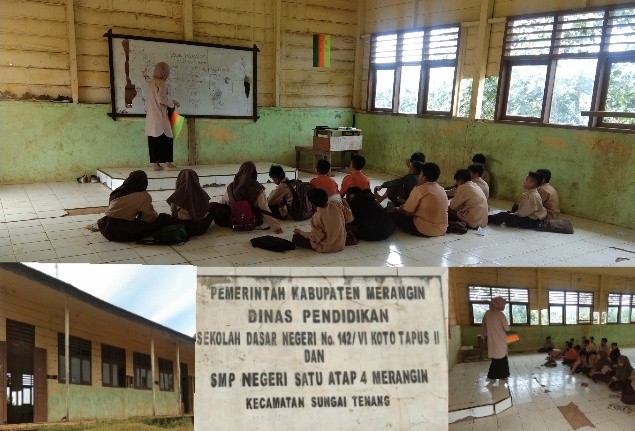 PEMERINTAH KABUPATEN MERANGIN
DINAS PENDIDIKAN
SEKOLAH DASAR NEGERI No. 142/VI KOTO TAPUS II
DAN
SMP NEGERI SATU ATAP 4 MERANGIN
KECAMATAN SUNGAI TENANG